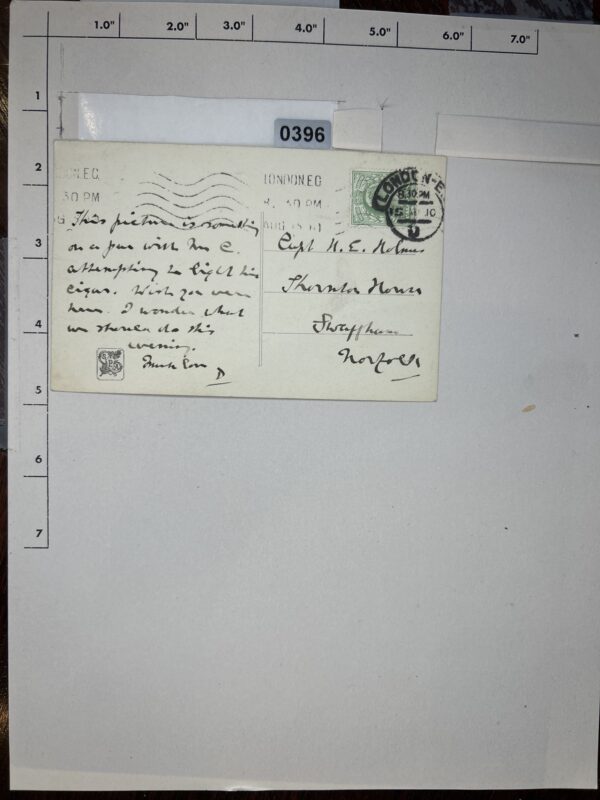 1.0" 2.0" 3.0" 4.0" 5.0" 6.0" 7.0"
1
2
3
4
5
6
7
0396
LONDON.E.C.
.30 PM
LONDON.E.C
8.30 PM
AUG 15 10
LONDON-E
8.30 PM
15 AU 10
This picture is something
on a par with Mr C.
attempting to light his
cigar. Wish you were
here. I wonder what
we should do this
evening.
Capt H. E. Holmes
Thornton House
Swaffham
Norfolk